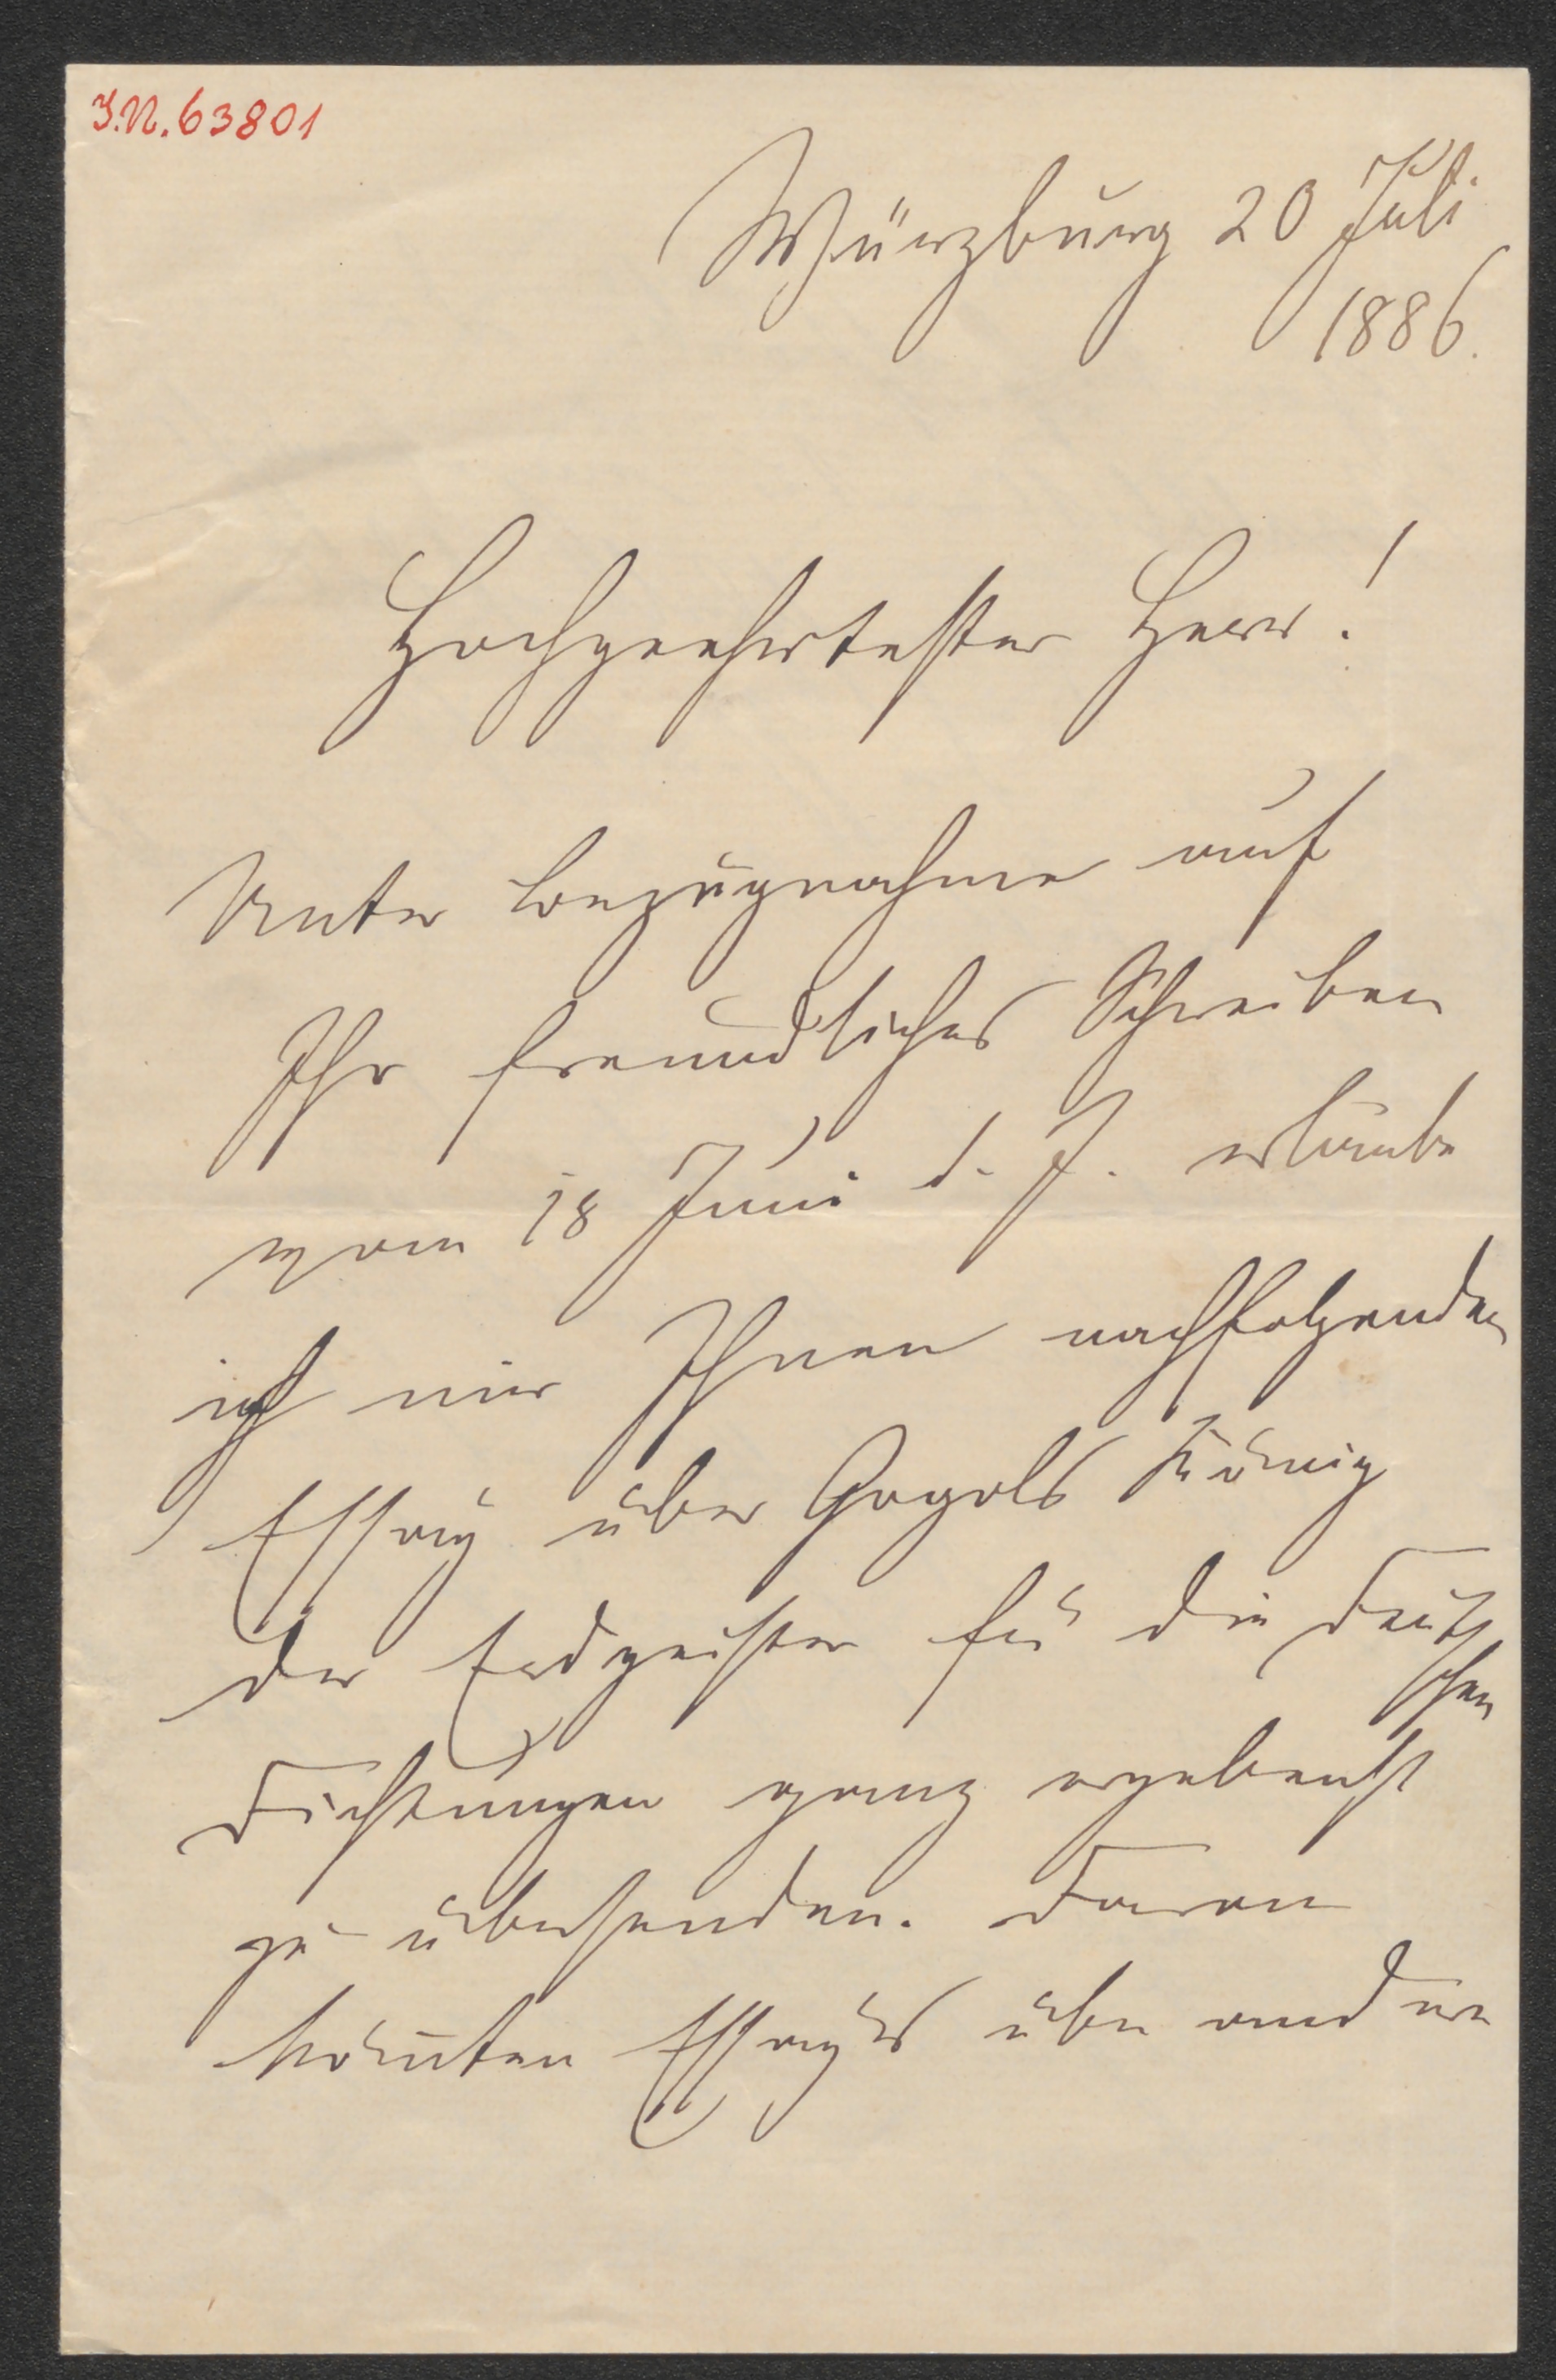 I.N. 63801
Würzburg 20 Juli
1886.
Hochgeehrtester Herr!
Unter Bezugnahme auf
Ihr freundliches Schreiben
vom 18 Juni d. J. erlaube
ich mir Ihnen nachfolgenden
Essay über Gogols König
der Erdgeister für die Deut
schen
Dichtungen ganz ergebenst
zu übersenden. Daran
könnten Essay's über andere